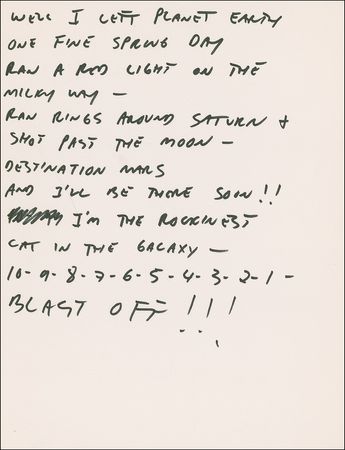 WELL I LEFT PLANET EARTH
ONE FINE SPRING DAY
RAN A RED LIGHT ON THE
MILKY WAY —
RAN RINGS AROUND SATURN &
SHOT PAST THE MOON —
DESTINATION MARS
AND I'LL BE THERE SOON!!
I'M THE ROCKINEST
CAT IN THE GALAXY —
10-9-8-7-6-5-4-3-2-1-
BLAST OFF!!!